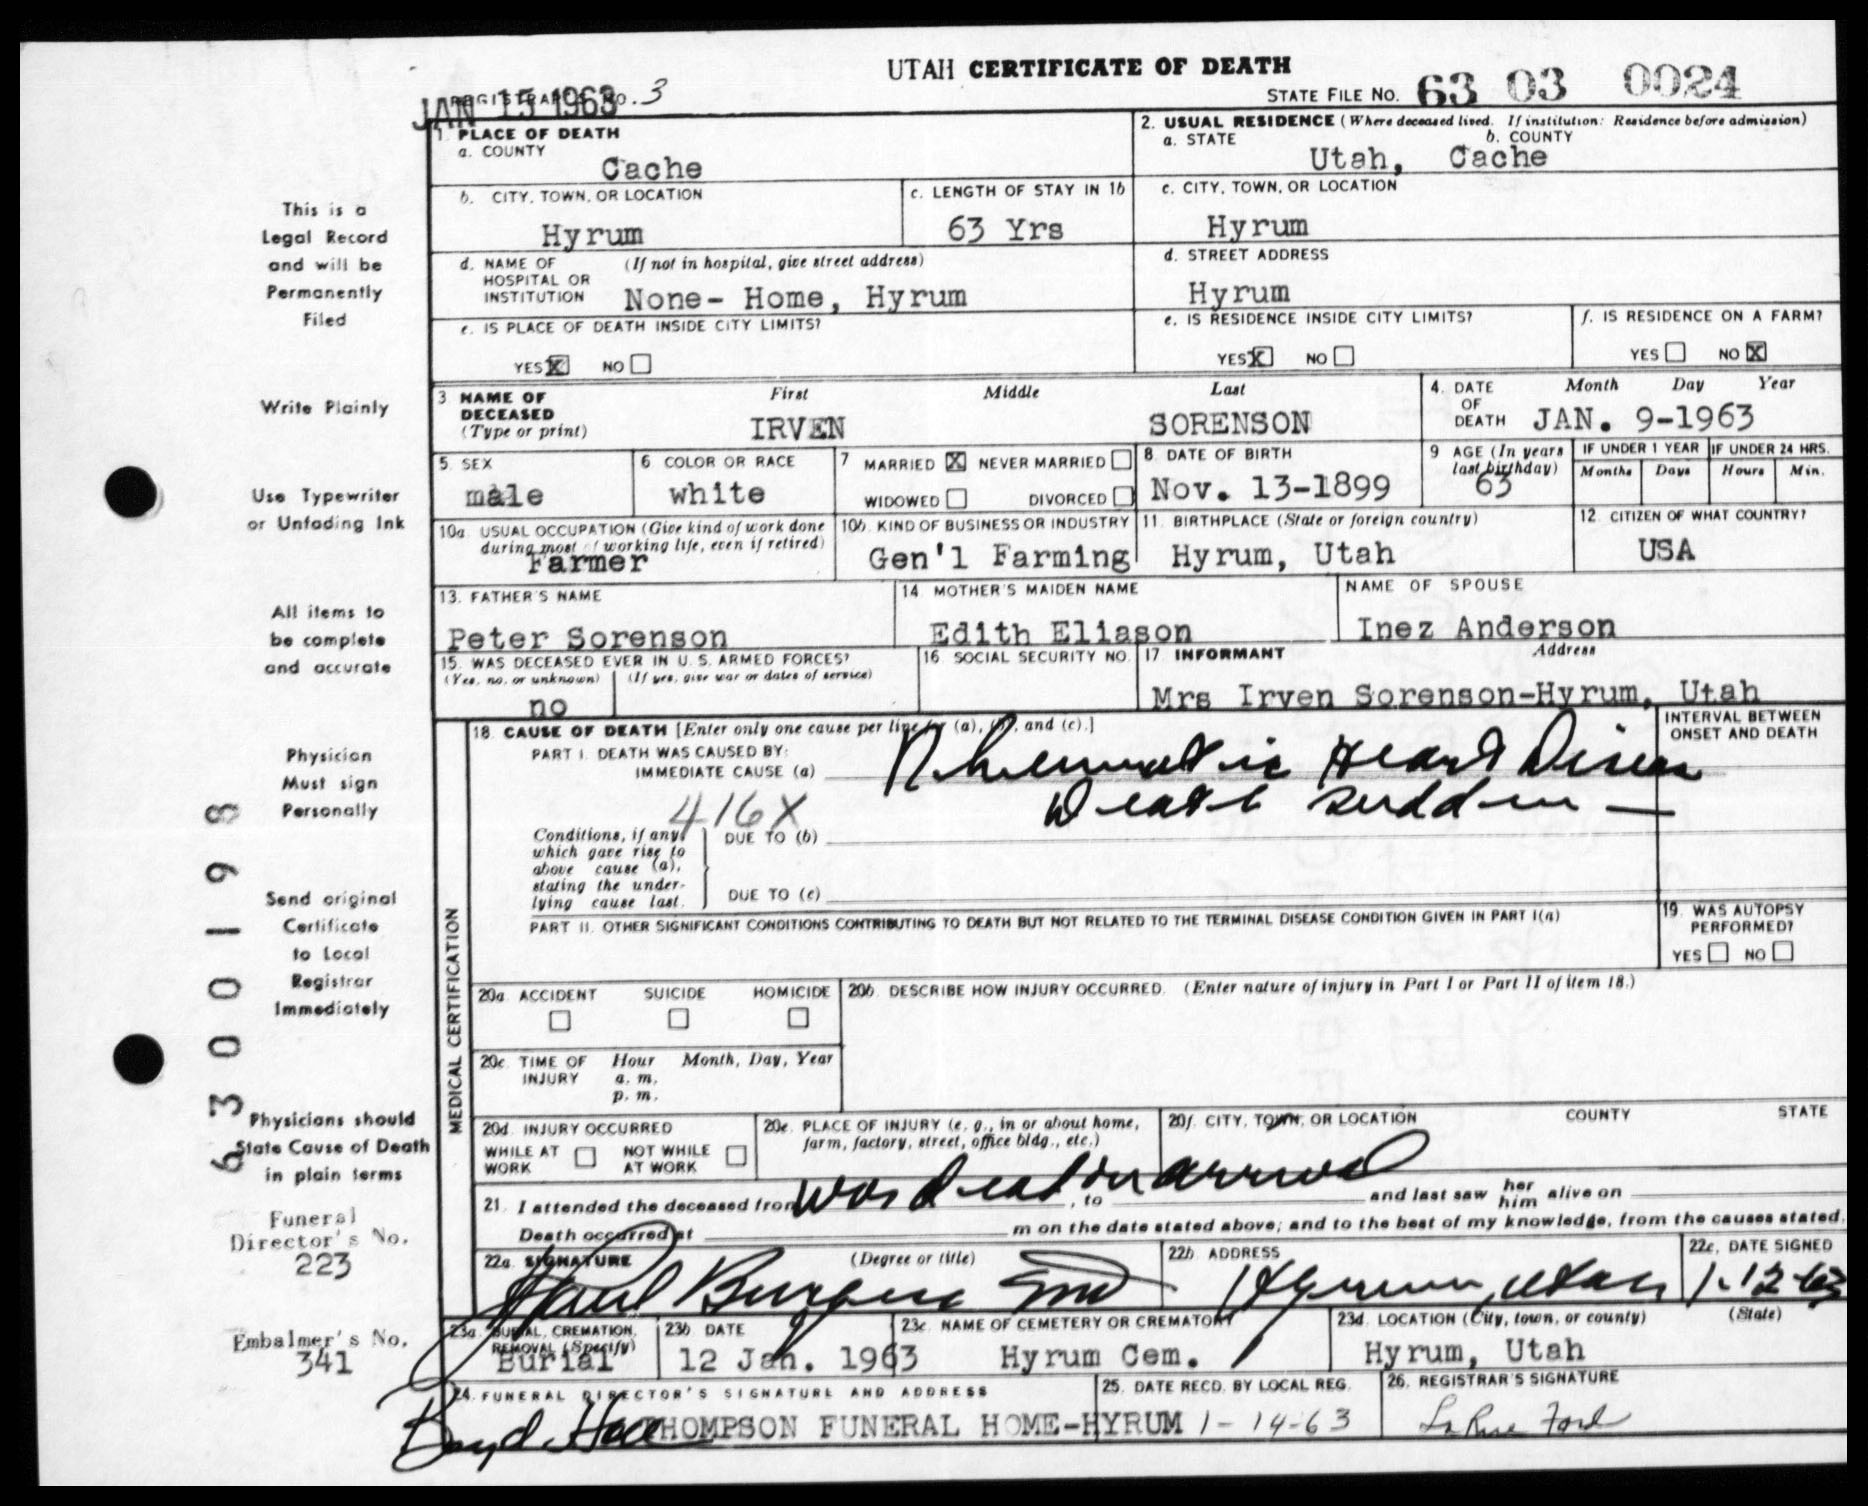 UTAH CERTIFICATE OF DEATH
JAN 15 1963
REGISTRAR'S NO. 3
STATE FILE NO. 63 03 0024
1. PLACE OF DEATH
a. COUNTY
Cache
2. USUAL RESIDENCE (Where deceased lived. If institution: Residence before admission)
a. STATE b. COUNTY
Utah, Cache
b. CITY, TOWN, OR LOCATION
Hyrum
c. LENGTH OF STAY IN 1b
63 Yrs
c. CITY, TOWN, OR LOCATION
Hyrum
d. NAME OF HOSPITAL OR INSTITUTION (If not in hospital, give street address)
None- Home, Hyrum
d. STREET ADDRESS
Hyrum
e. IS PLACE OF DEATH INSIDE CITY LIMITS?
YES X NO
e. IS RESIDENCE INSIDE CITY LIMITS?
YES X NO
f. IS RESIDENCE ON A FARM?
YES NO X
3. NAME OF DECEASED (Type or print)
First Middle Last
IRVEN SORENSON
4. DATE OF DEATH Month Day Year
JAN. 9-1963
5. SEX
male
6. COLOR OR RACE
white
7. MARRIED X NEVER MARRIED
WIDOWED DIVORCED
8. DATE OF BIRTH
Nov. 13-1899
9. AGE (In years last birthday)
63
IF UNDER 1 YEAR
Months Days
IF UNDER 24 HRS.
Hours Min.
10a. USUAL OCCUPATION (Give kind of work done during most of working life, even if retired)
Farmer
10b. KIND OF BUSINESS OR INDUSTRY
Gen'l Farming
11. BIRTHPLACE (State or foreign country)
Hyrum, Utah
12. CITIZEN OF WHAT COUNTRY?
USA
13. FATHER'S NAME
Peter Sorenson
14. MOTHER'S MAIDEN NAME
Edith Eliason
NAME OF SPOUSE
Inez Anderson
15. WAS DECEASED EVER IN U. S. ARMED FORCES?
(Yes, no, or unknown) (If yes, give war or dates of service)
no
16. SOCIAL SECURITY NO.
17. INFORMANT Address
Mrs Irven Sorenson-Hyrum, Utah
MEDICAL CERTIFICATION
18. CAUSE OF DEATH [Enter only one cause per line for (a), (b), and (c).]
PART I. DEATH WAS CAUSED BY:
IMMEDIATE CAUSE (a) Rheumatic Heart Disease
Death sudden —
416X
INTERVAL BETWEEN ONSET AND DEATH
Conditions, if any, which gave rise to above cause (a), stating the underlying cause last.
DUE TO (b)
DUE TO (c)
PART II. OTHER SIGNIFICANT CONDITIONS CONTRIBUTING TO DEATH BUT NOT RELATED TO THE TERMINAL DISEASE CONDITION GIVEN IN PART I(a)
19. WAS AUTOPSY PERFORMED?
YES NO
20a. ACCIDENT SUICIDE HOMICIDE
20b. DESCRIBE HOW INJURY OCCURRED. (Enter nature of injury in Part I or Part II of item 18.)
20c. TIME OF INJURY Hour Month, Day, Year
a. m.
p. m.
20d. INJURY OCCURRED
WHILE AT WORK NOT WHILE AT WORK
20e. PLACE OF INJURY (e. g., in or about home, farm, factory, street, office bldg., etc.)
20f. CITY, TOWN, OR LOCATION COUNTY STATE
21. I attended the deceased from was dead on arrival, to and last saw her him alive on
Death occurred at m on the date stated above; and to the best of my knowledge, from the causes stated.
22a. SIGNATURE (Degree or title)
Paul Burgess MD
22b. ADDRESS
Hyrum, Utah
22c. DATE SIGNED
1-12-63
23a. BURIAL, CREMATION, REMOVAL (Specify)
Burial
23b. DATE
12 Jan. 1963
23c. NAME OF CEMETERY OR CREMATORY
Hyrum Cem.
23d. LOCATION (City, town, or county) (State)
Hyrum, Utah
24. FUNERAL DIRECTOR'S SIGNATURE AND ADDRESS
Boyd Hall THOMPSON FUNERAL HOME-HYRUM
25. DATE RECD. BY LOCAL REG.
1-14-63
26. REGISTRAR'S SIGNATURE
LaRue Ford
This is a
Legal Record
and will be
Permanently
Filed
Write Plainly
Use Typewriter
or Unfading Ink
All items to
be complete
and accurate
Physician
Must sign
Personally
Send original
Certificate
to Local
Registrar
Immediately
Physicians should
State Cause of Death
in plain terms
Funeral
Director's No.
223
Embalmer's No.
341
6300198